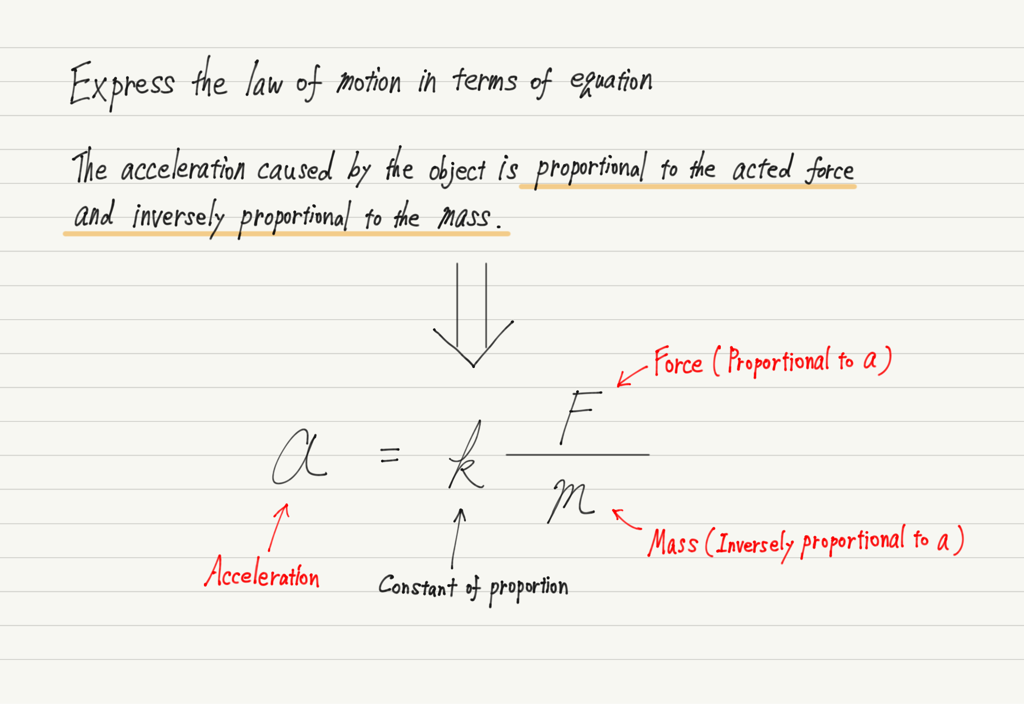 Express the law of motion in terms of equation
The acceleration caused by the object is proportional to the acted force
and inversely proportional to the mass.
Force (Proportional to a)
a = k F/m
Mass (Inversely proportional to a)
Acceleration
Constant of proportion